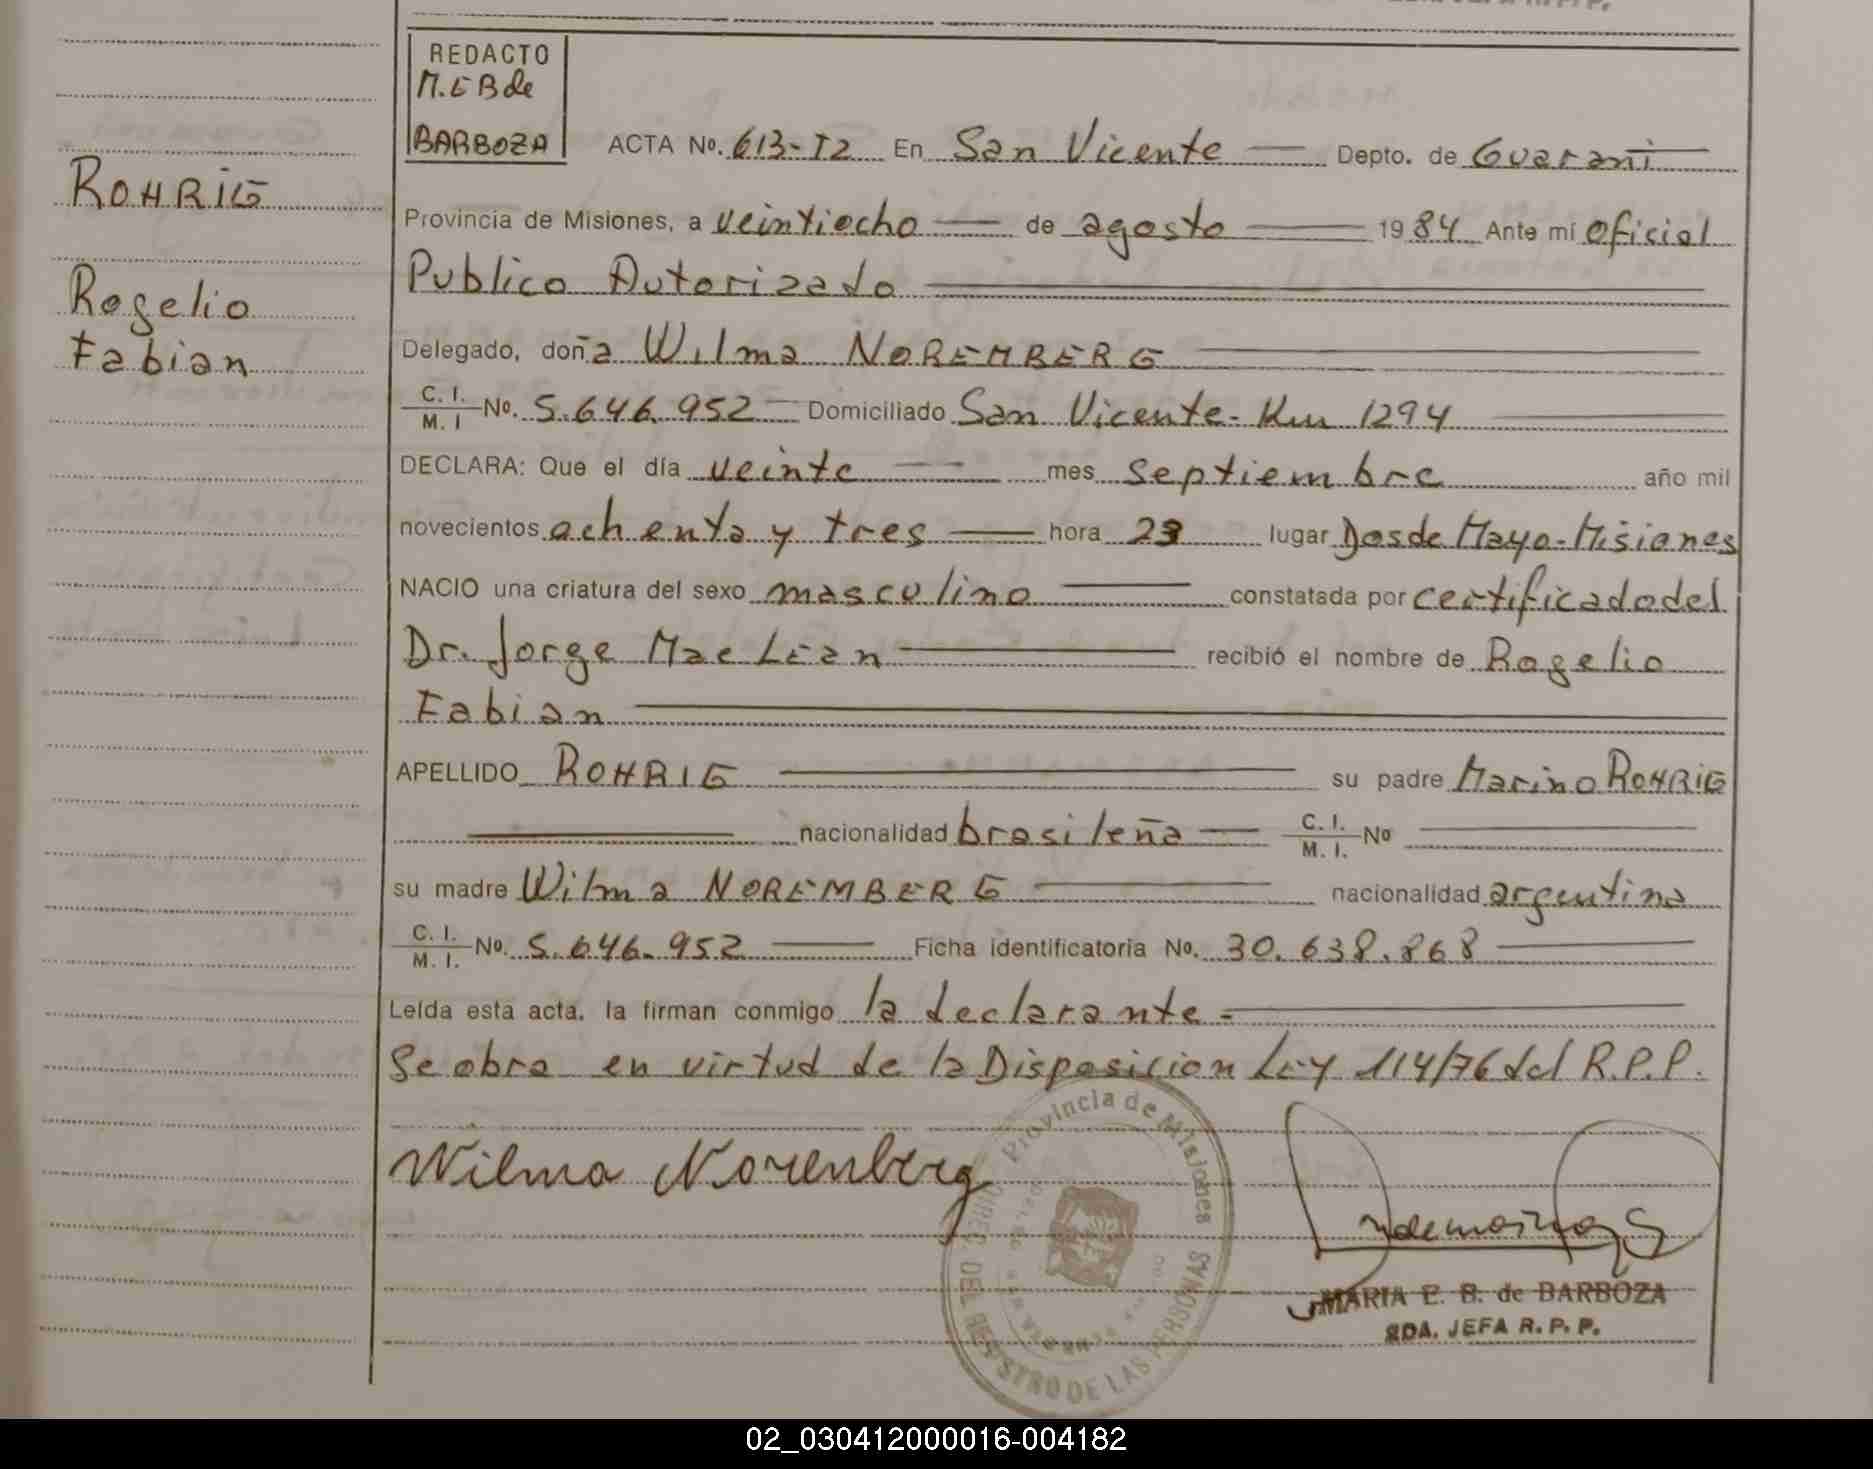 REDACTO
M.E B de
BARBOZA
ACTA No. 613-T2 En San Vicente Depto. de Guarani
ROHRIG
Provincia de Misiones, a veintiocho de agosto 1984 Ante mí Oficial
Publico Autorizado
Rogelio
Fabian
Delegado, doña Wilma NOREMBERG
C. I.
M. I No. 5.646.952 Domiciliado San Vicente- Km 1294
DECLARA: Que el día veinte mes septiembre año mil
novecientos ochenta y tres hora 23 lugar Dosde Mayo-Misiones
NACIO una criatura del sexo masculino constatada por certificado del
Dr. Jorge Mac Lean recibió el nombre de Rogelio
Fabian
APELLIDO ROHRIG su padre Marino ROHRIG
nacionalidad brasileña C. I.
M. I. No
su madre Wilma NOREMBERG nacionalidad argentina
C. I.
M. I. No. 5.646.952 Ficha identificatoria No. 30.638.868
Leída esta acta, la firman conmigo la declarante-
Se obra en virtud de la Disposicion Ley 114/76 del R.P.P.
Wilma Norenberg
Provincia de Misiones
DIREC. DEL REGISTRO DE LAS PERSONAS
MARIA E. B. de BARBOZA
2DA. JEFA R. P. P.
02_030412000016-004182